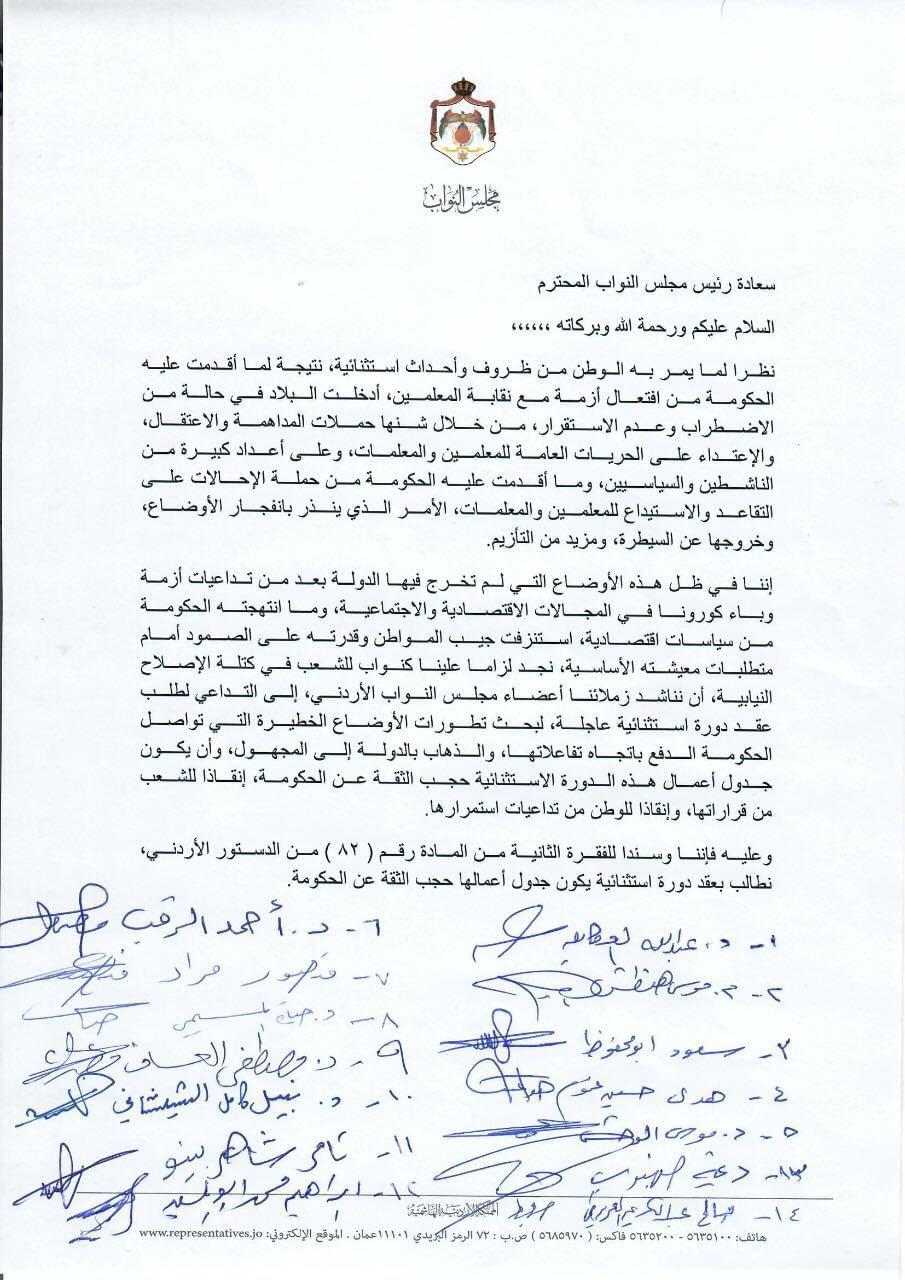 مجلس النواب
سعادة رئيس مجلس النواب المحترم
السلام عليكم ورحمة الله وبركاته ،،،،،،
نظرا لما يمر به الوطن من ظروف وأحداث استثنائية، نتيجة لما أقدمت عليه
الحكومة من افتعال أزمة مع نقابة المعلمين، أدخلت البلاد في حالة من
الاضطراب وعدم الاستقرار، من خلال شنها حملات المداهمة والاعتقال،
والإعتداء على الحريات العامة للمعلمين والمعلمات، وعلى أعداد كبيرة من
الناشطين والسياسيين، وما أقدمت عليه الحكومة من حملة الإحالات على
التقاعد والاستيداع للمعلمين والمعلمات، الأمر الذي ينذر بانفجار الأوضاع،
وخروجها عن السيطرة، ومزيد من التأزيم.
إننا في ظل هذه الأوضاع التي لم تخرج فيها الدولة بعد من تداعيات أزمة
وباء كورونا في المجالات الاقتصادية والاجتماعية، وما انتهجته الحكومة
من سياسات اقتصادية، استنزفت جيب المواطن وقدرته على الصمود أمام
متطلبات معيشته الأساسية، نجد لزاما علينا كنواب للشعب في كتلة الإصلاح
النيابية، أن نناشد زملائنا أعضاء مجلس النواب الأردني، إلى التداعي لطلب
عقد دورة استثنائية عاجلة، لبحث تطورات الأوضاع الخطيرة التي تواصل
الحكومة الدفع باتجاه تفاعلاتها، والذهاب بالدولة إلى المجهول، وأن يكون
جدول أعمال هذه الدورة الاستثنائية حجب الثقة عن الحكومة، إنقاذا للشعب
من قراراتها، وإنقاذا للوطن من تداعيات استمرارها.
وعليه فإننا وسندا للفقرة الثانية من المادة رقم ( ٨٢ ) من الدستور الأردني،
نطالب بعقد دورة استثنائية يكون جدول أعمالها حجب الثقة عن الحكومة.
١- د. عبدالله العكايلة
٢- م. موسى هنطش
٣- سعود ابو محفوظ
٤- هدى حسين عتوم
٥- د. موسى الوحش
١٣- ديمة
١٤- صالح عبدالكريم
٦- د. أحمد الرقب
٧- منصور مراد
٨- د. حياة المسيمي
٩- د. مصطفى العساف
١٠- د. نبيل كامل الشيشاني
١١- تامر شاهر بينو
١٢- ابراهيم
المملكة الأردنية الهاشمية
هاتف: ٥٦٣٥١٠٠ - ٥٦٣٥٢٠٠ فاكس: ( ٥٦٨٥٩٧٠ ) ص.ب : ٧٢ الرمز البريدي ١١١٠١عمان . الموقع الإلكتروني: www.representatives.jo